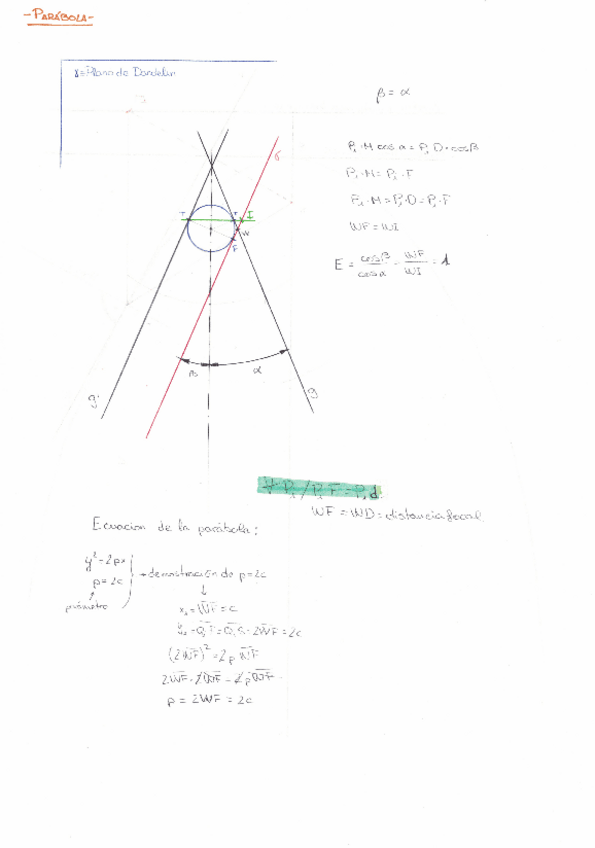 -PARÁBOLA-
γ=Plano de Dandelin
β = α
P₁·M cos α = P₁D·cosβ
P₁·M = P₁·F
P₁·M = P₁·D = P₁·F
WF = WI
E = cosβ/cosα = WF/WI = 1
σ
T
T
I
W
F
β
α
g'
g
∀ P₁ / P₁F = P₁d
WF = WD = distancia focal
Ecuación de la parábola:
y² = 2px
p = 2c
→ demostración de p=2c
↑
parámetro
↓
x₂ = WF = c
= 2WF = 2c
(2WF)² = 2p WF
2WF · 2WF = 2pWF
p = 2WF = 2c